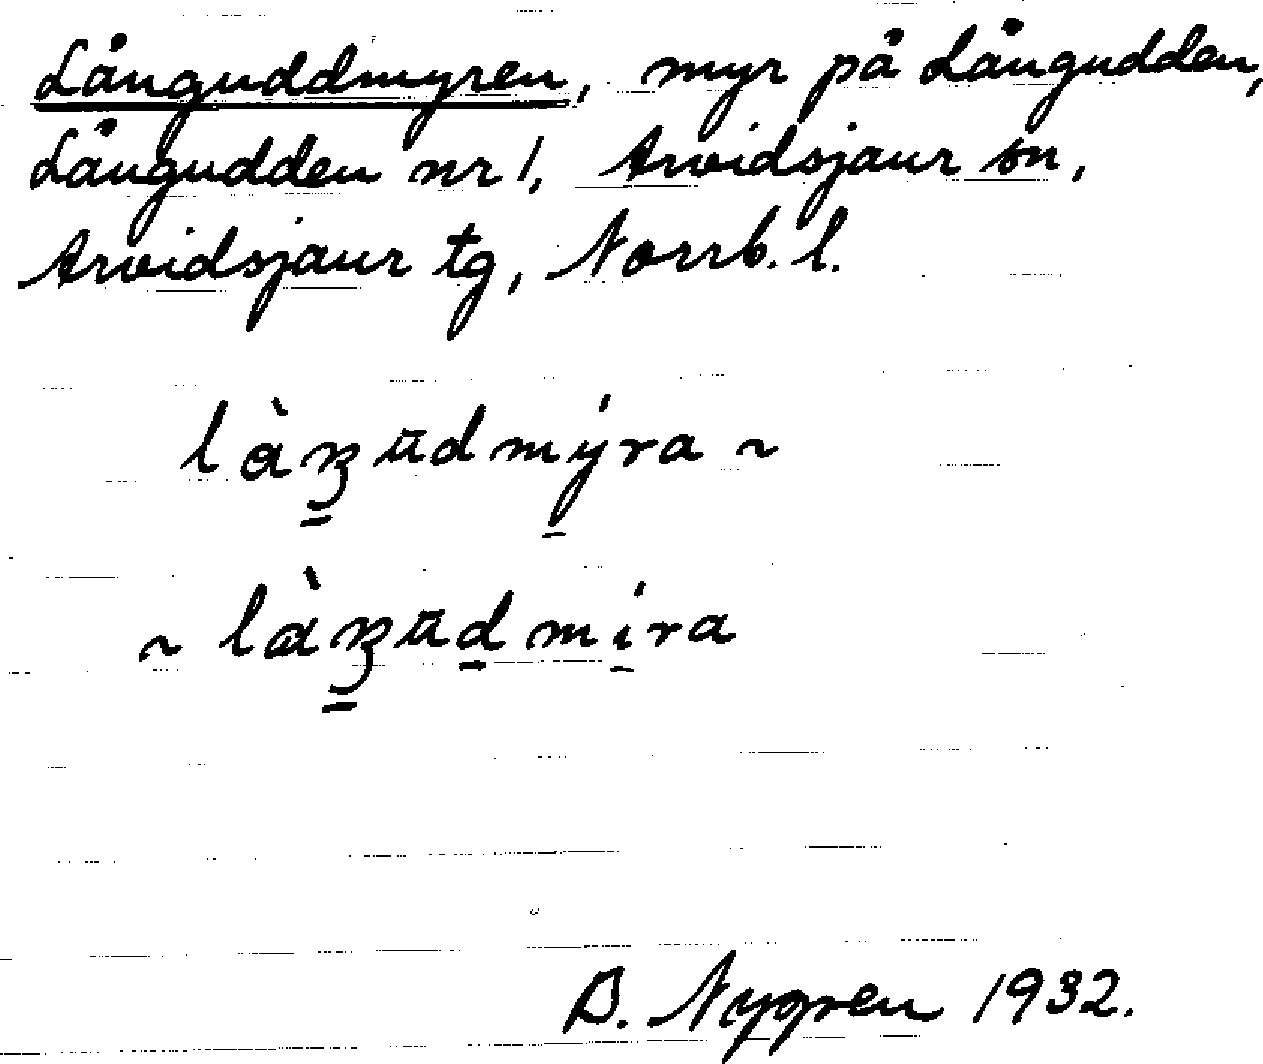 Långuddmyren, myr på Långudden,
Långudden nr 1, Arvidsjaur sn,
Arvidsjaur tg, Norrb. l.
làŋ̳ūdmý̱ra ~
~ làŋ̳ūḏmí̱ra
B. Nygren 1932.